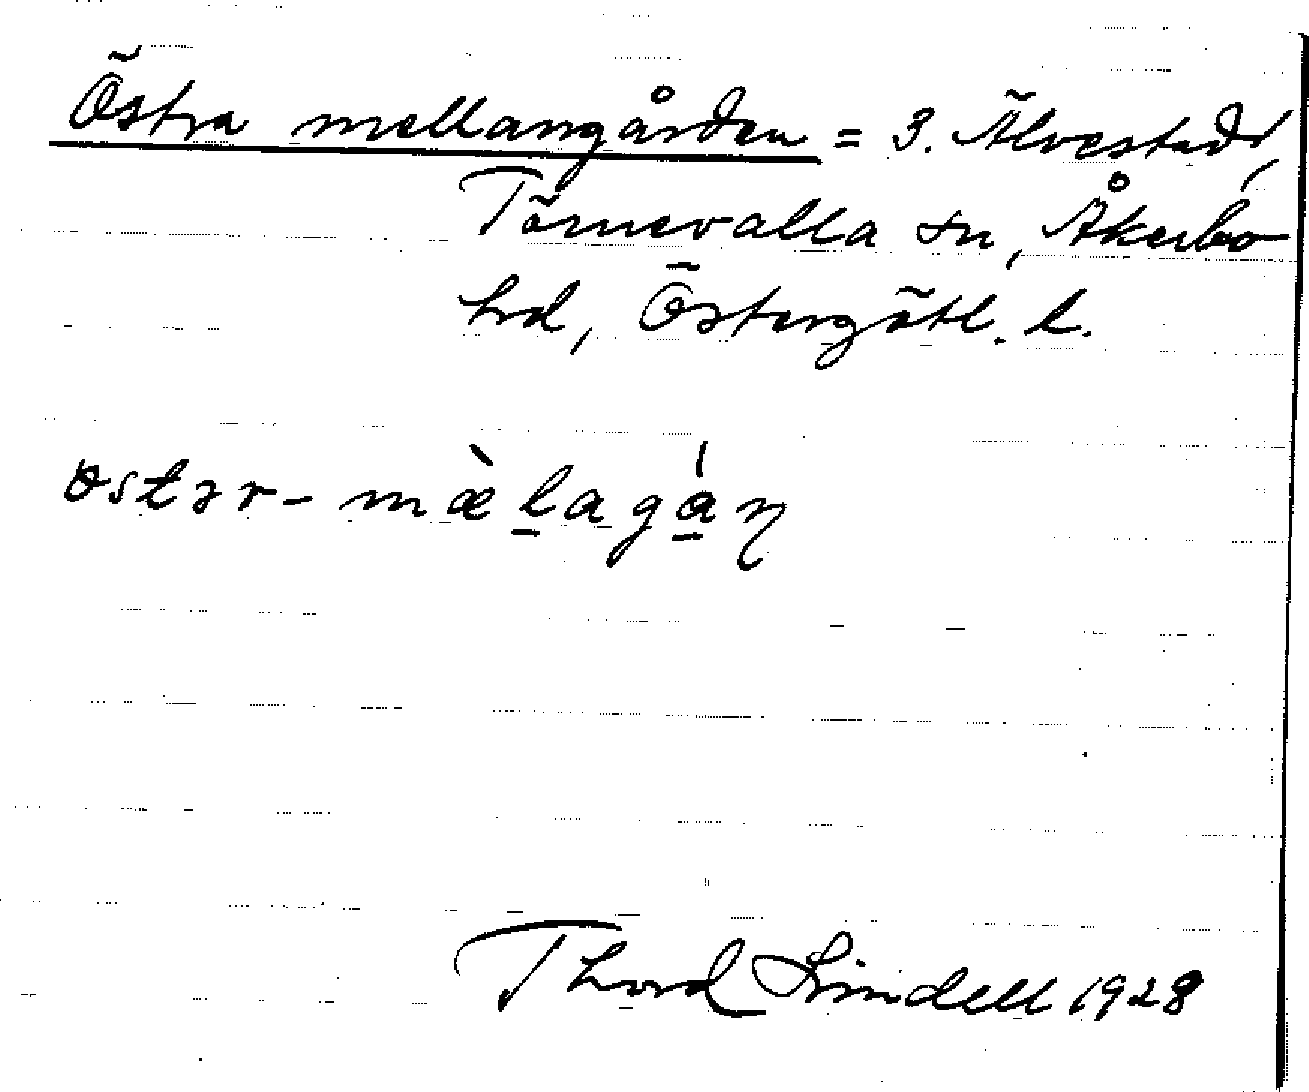 Östra mellangården = 3. Älvestad,
Törnevalla sn, Åkerbo
hd, Östergötl. l.
ɵstər-mæ̀l̠agá̠ɳ
Thord Lindell 1928